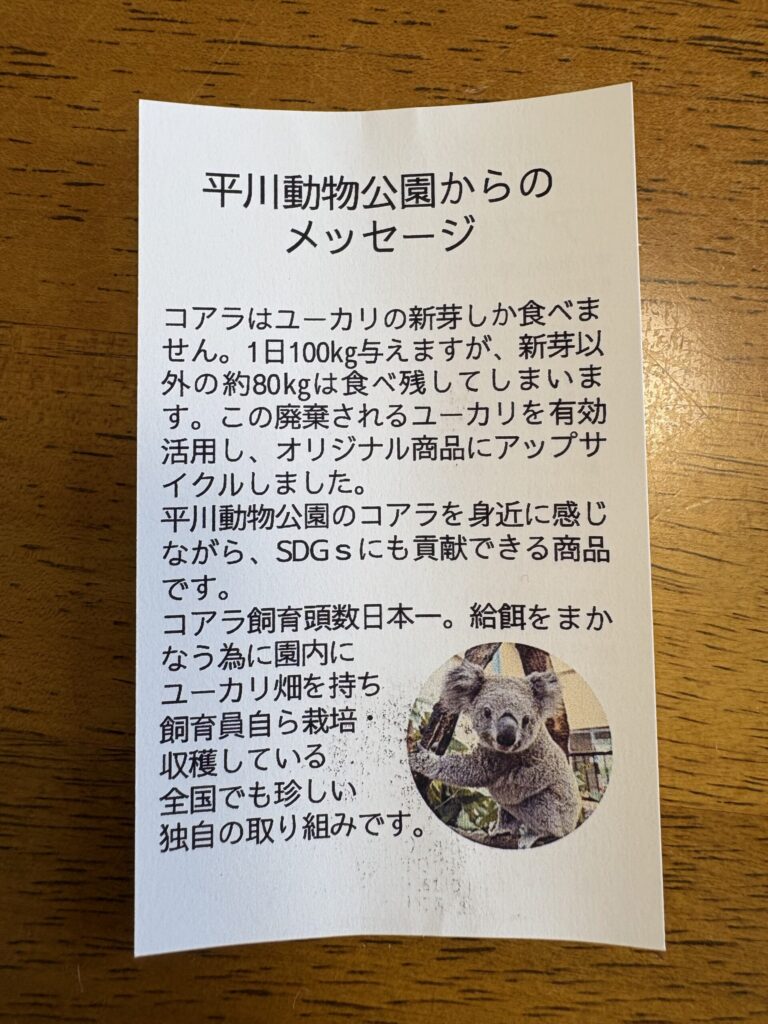 平川動物公園からの
メッセージ
コアラはユーカリの新芽しか食べま
せん。1日100㎏与えますが、新芽以
外の約80㎏は食べ残してしまいま
す。この廃棄されるユーカリを有効
活用し、オリジナル商品にアップサ
イクルしました。
平川動物公園のコアラを身近に感じ
ながら、SDGｓにも貢献できる商品
です。
コアラ飼育頭数日本一。給餌をまか
なう為に園内に
ユーカリ畑を持ち
飼育員自ら栽培・
収穫している
全国でも珍しい
独自の取り組みです。